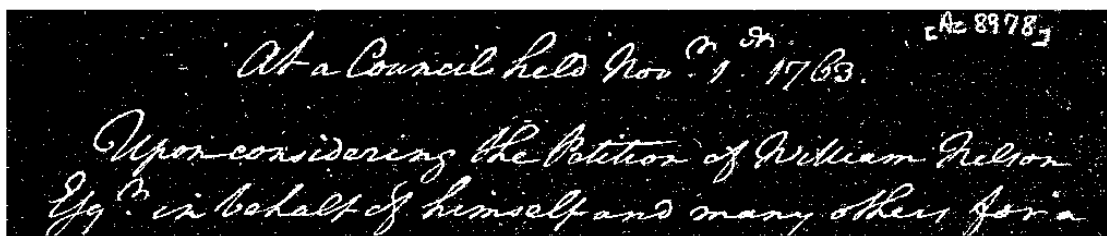 [Az 8978]
At a Council held Nov.r 1st 1763.
Upon considering the Petition of William Nelson
Esq.r in behalf of himself and many others for a